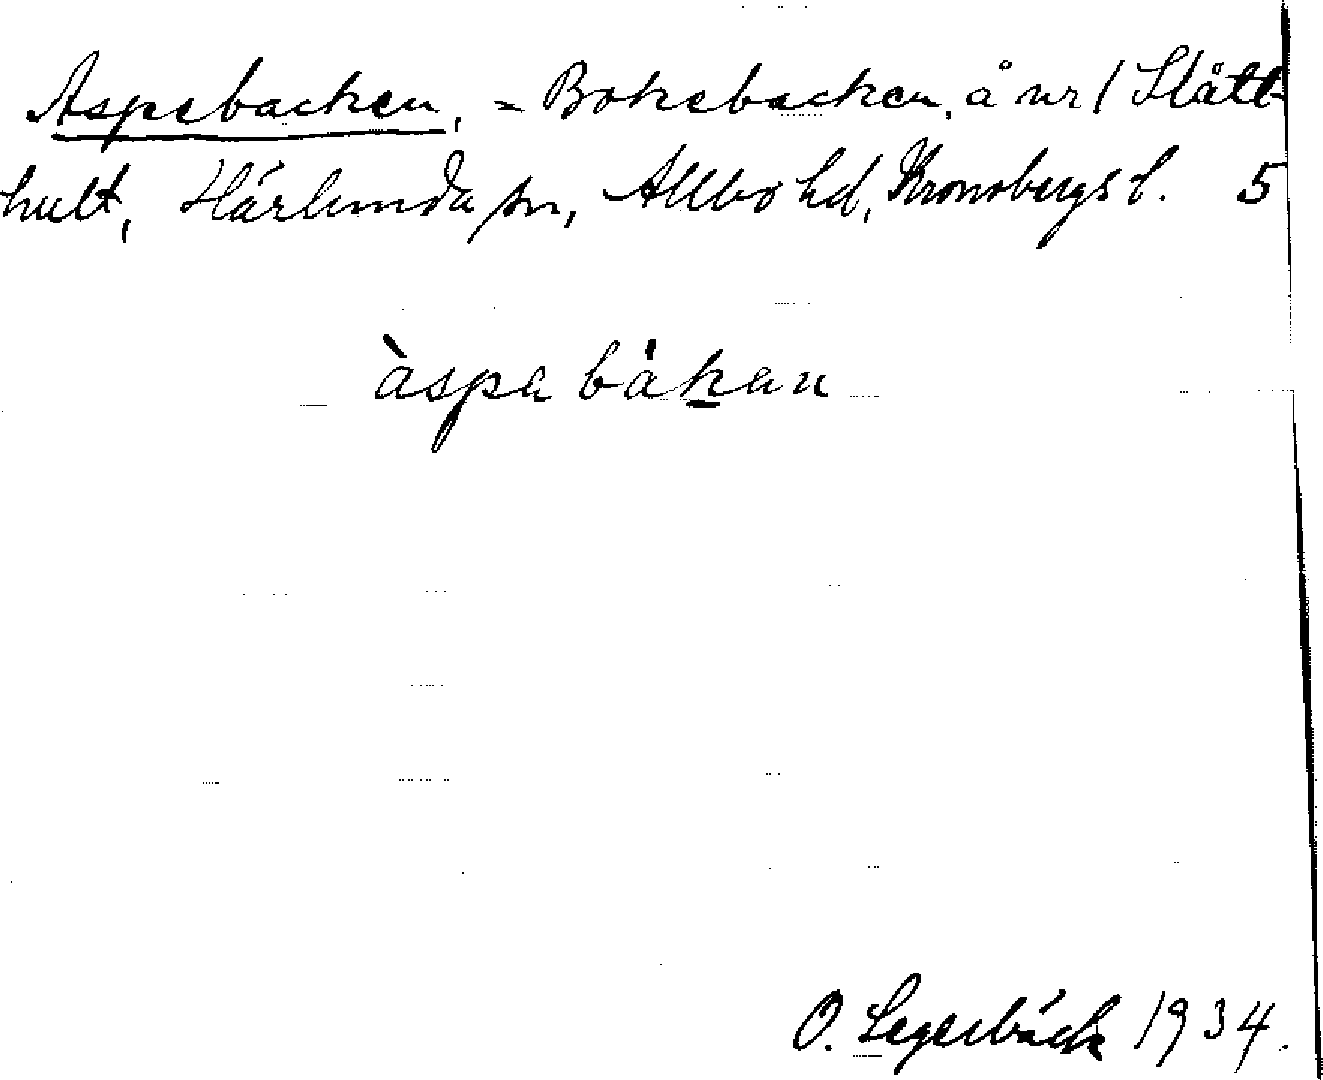 Aspebacken, = Bokebacken, å nr 1 Slätt-
hult, Härlunda sn, Allbo hd, Kronobergs l. 5
àspa bákan
O. Segerbäck 1934.